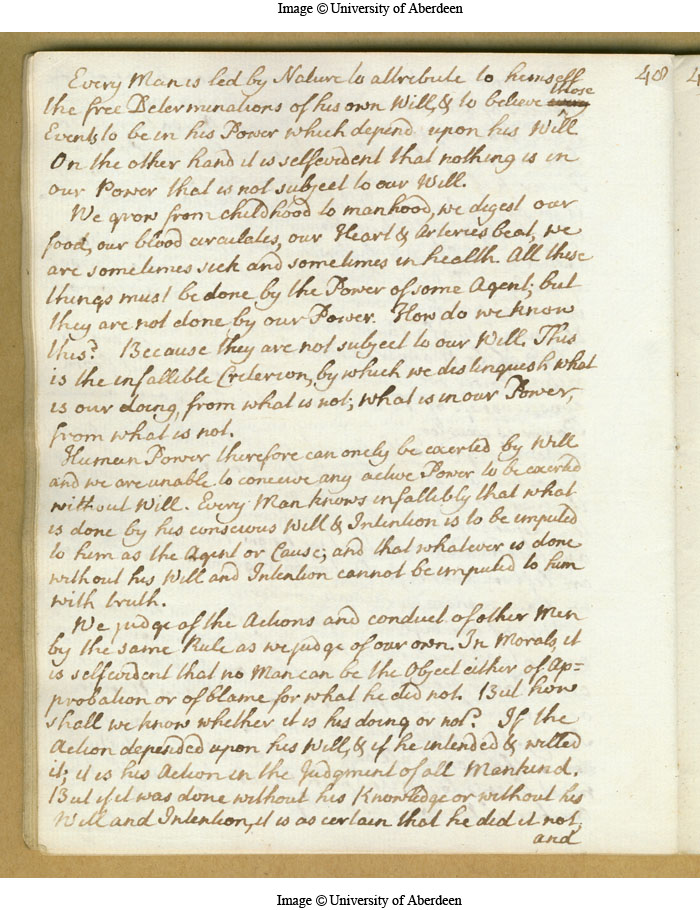 Image © University of Aberdeen
408
4
Every Man is led by Nature to attribute to himself
the free Determinations of his own Will, & to believe every those
Events to be in his Power which depend upon his Will
On the other hand it is selfevident that nothing is in
our Power that is not subject to our Will.
We grow from childhood to manhood, we digest our
food, our blood circulates, our Heart & Arteries beat, we
are sometimes sick and sometimes in health. All these
things must be done by the Power of some Agent; but
they are not done by our Power. How do we know
this? Because they are not subject to our Will. This
is the infallible Criterion, by which we distinguish what
is our doing, from what is not; what is in our Power,
from what is not.
Human Power therefore can onely be exerted by Will
and we are unable to conceive any active Power to be exerted
without Will. Every Man knows infallibly that what
is done by his conscious Will & Intention is to be imputed
to him as the Agent or Cause; and that whatever is done
without his Will and Intention cannot be imputed to him
with truth.
We judge of the Actions and conduct of other Men
by the same Rule as we judge of our own. In Morals, it
is selfevident that no Man can be the Object either of Ap=
probation or of blame for what he did not. But how
shall we know whether it is his doing or not? If the
Action depended upon his Will, & if he intended & willed
it; it is his Action in the Judgment of all Mankind.
But if it was done without his Knowledge or without his
Will and Intention, it is as certain that he did it not,
and
Image © University of Aberdeen